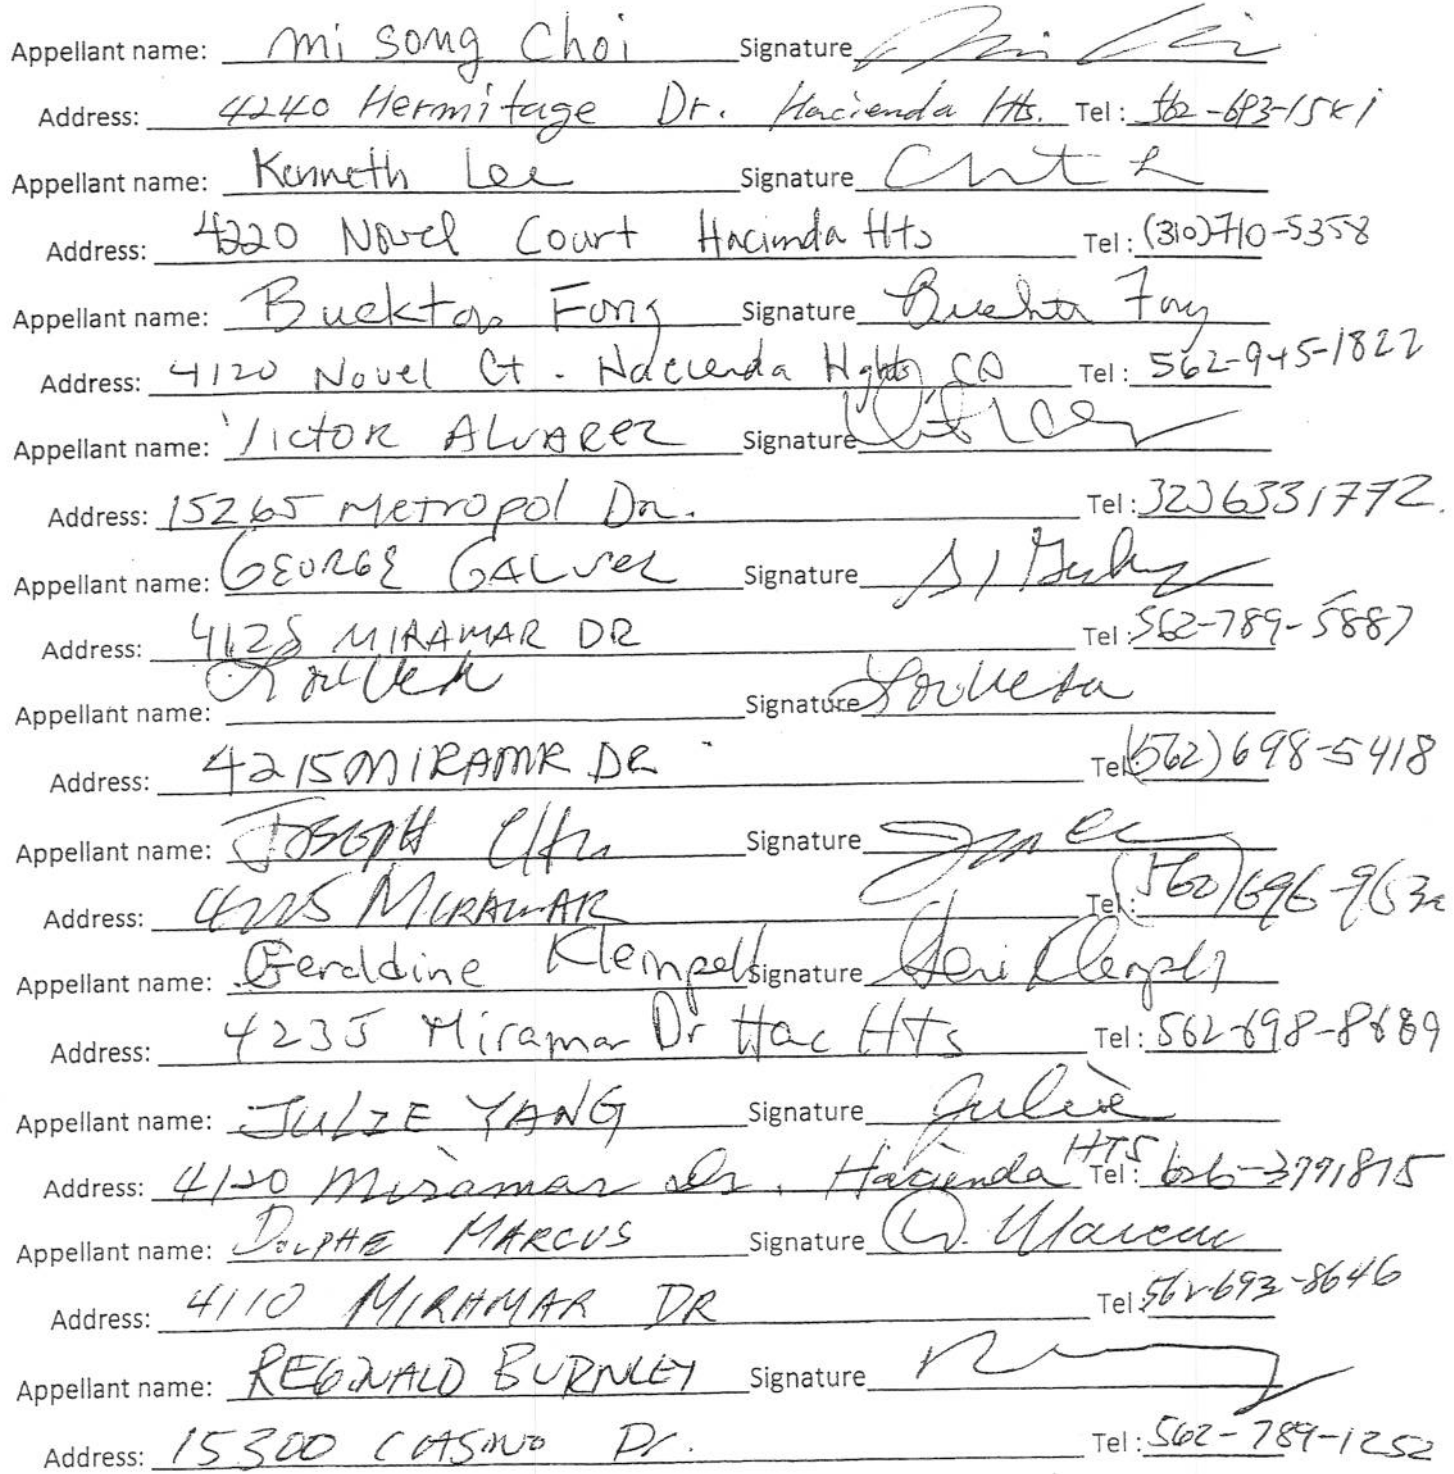 Appellant name: Mi Song Choi Signature
Address: 4240 Hermitage Dr. Hacienda Hts. Tel:
Appellant name: Kenneth Lee Signature
Address: 4220 Novel Court Hacimda Hts Tel: (310)710-5358
Appellant name: Buckton Fong Signature Fong
Address: 4120 Novel Ct. Hacienda Hghts CA Tel: 562-945-1822
Appellant name: Victor Alvarez Signature
Address: 15265 Metropol Dr. Tel: 3236331772.
Appellant name: George Galvez Signature
Address: 4125 Miramar DR Tel: 562-789-5887
Appellant name: Signature
Address: 4215 MIRAMR DR Tel (562) 698-5418
Appellant name: Joseph Signature
Address: Miramar Tel:
Appellant name: Geraldine Klempell Signature Geri
Address: 4235 Miramar Dr Hac Hts Tel: 562-698-8689
Appellant name: JULIE YANG Signature Julie
Address: 4120 Miramar Dr. Hacienda HTS Tel: 626-3791815
Appellant name: DOLPHE MARCUS Signature D. Marcus
Address: 4110 MIRAMAR DR Tel: 8646
Appellant name: REGINALD BURNLEY Signature
Address: 15300 CASINO Dr. Tel: 562-789-1252